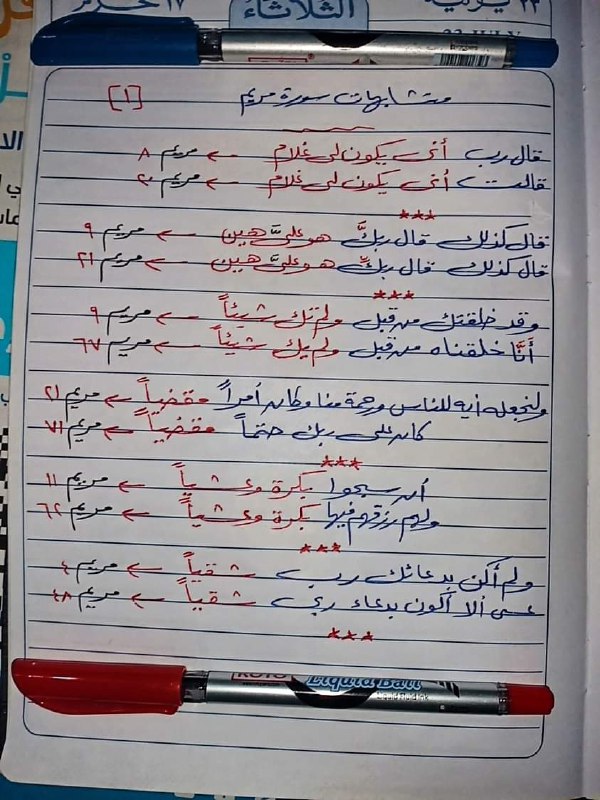 الثلاثاء
متشابهات سورة مريم [١]
قال رب أنى يكون لى غلام ← مريم ٨
قالت أنى يكون لى غلام ← مريم ٢٠
***
قال كذلك قال ربكَ هو علىَّ هين ← مريم ٩
قال كذلك قال ربكِ هو علىَّ هين ← مريم ٢١
***
وقد خلقتك من قبل ولم تك شيئاً ← مريم ٩
أنَّا خلقناه من قبل ولم يك شيئاً ← مريم ٦٧
ولنجعله آيه للناس ورحمة منا وكان أمراً مقضياً ← مريم ٢١
كان على ربك حتماً مقضياً ← مريم ٧١
***
أن سبحوا بكرة وعشياً ← مريم ١١
ولهم رزقهم فيها بكرة وعشياً ← مريم ٦٢
***
ولم أكن بدعائك رب شقياً ← مريم ٤
عسى ألا أكون بدعاء ربى شقياً ← مريم ٤٨
***
Liquid Ball